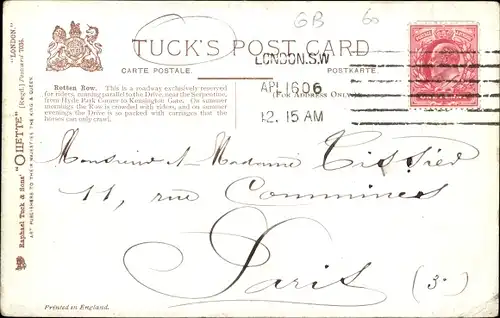 GB 60
TUCK'S POST CARD
CARTE POSTALE. POSTKARTE.
(FOR ADDRESS ONLY.)
LONDON. S.W
AP 16 06
12. 15 AM
Rotten Row. This is a roadway exclusively reserved
for riders, running parallel to the Drive, near the Serpentine,
from Hyde Park Corner to Kensington Gate. On summer
mornings the Row is crowded with riders, and on summer
evenings the Drive is so packed with carriages that the
horses can only crawl.
Raphael Tuck & Sons' "OILETTE" [Regd.] Postcard
"LONDON."
ART PUBLISHERS TO THEIR MAJESTIES THE KING & QUEEN
Monsieur et Madame Tissier
11, rue Commines
Paris (3e)
Printed in England.